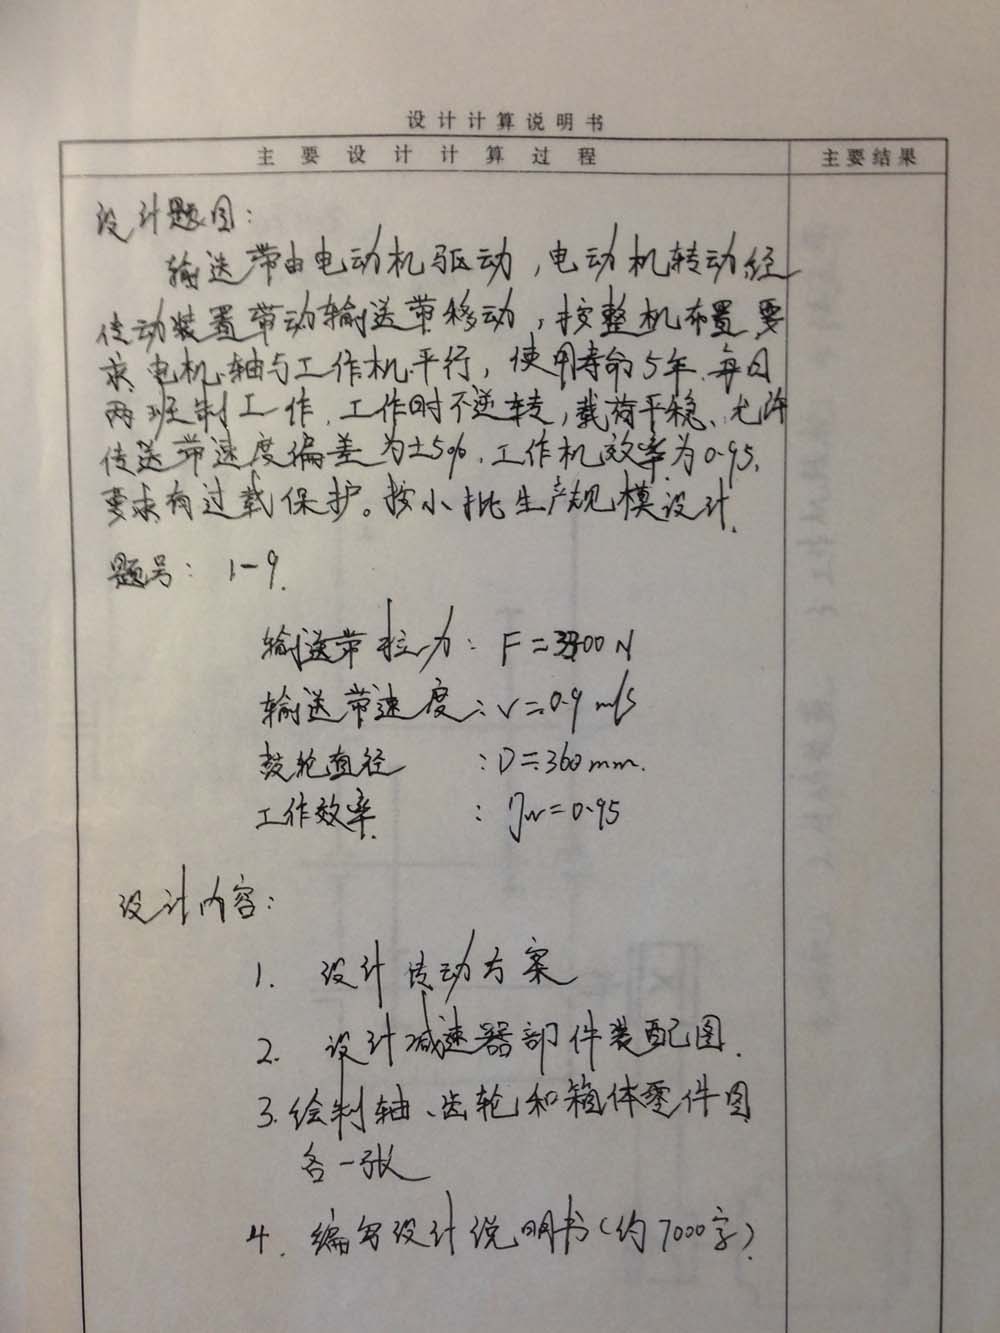 设计计算说明书
主要设计计算过程
主要结果
设计题图：
输送带由电动机驱动，电动机转动经
传动装置带动输送带移动，按整机布置要
求，电机轴与工作机平行，使用寿命5年，每日
两班制工作，工作时不逆转，载荷平稳、允许
传送带速度偏差为±5%，工作机效率为0.95，
要求有过载保护。按小批生产规模设计.
题号：1-9.
输送带拉力：F=00N
输送带速度：V=0.9 m/s
鼓轮直径：D=360mm.
工作效率：ηw=0.95
设计内容：
1. 设计传动方案
2. 设计减速器部件装配图.
3. 绘制轴、齿轮和箱体零件图
各一张
4. 编写设计说明书（约7000字）